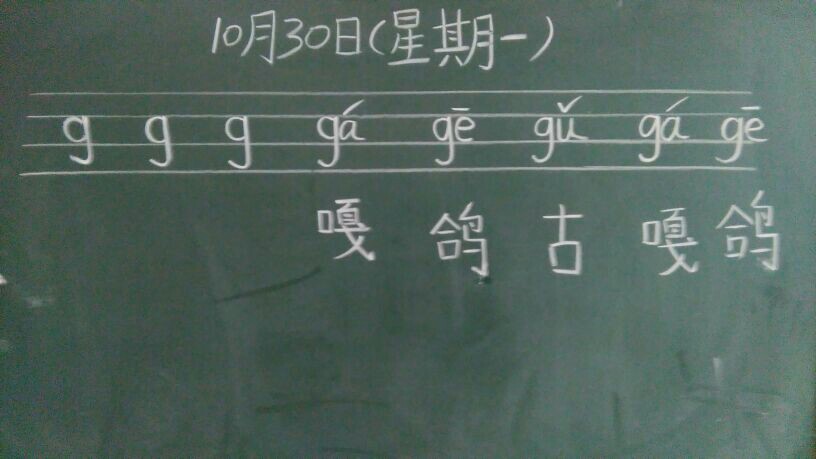 10月30日(星期一)
g g g gá gē gǔ gá gē
嘎 鸽 古 嘎 鸽